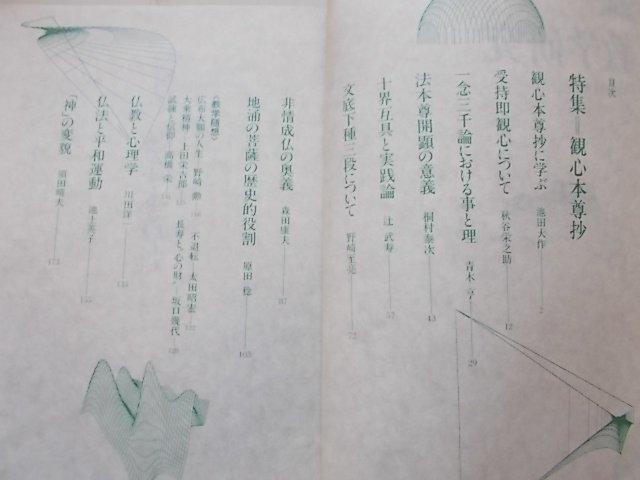 目次
特集＝観心本尊抄
観心本尊抄に学ぶ 池田大作 2
受持即観心について 秋谷栄之助 12
一念三千論における事と理 青木 亨 29
法本尊開顕の意義 桐村泰次 43
十界互具と実践論 辻 武寿 57
文底下種三段について 野崎至亮 72
非情成仏の奥義 森田康夫 87
地涌の菩薩の歴史的役割 原田 稔 103
〈教学随想〉
広布大願の人生 野崎 勲 不退転 太田昭宏 122
大乗精神 上田栄吉郎 長寿と“心の財” 坂口幾代 128
試練と信仰 高橋 栄
仏教と心理学 川田洋一
仏法と平和運動 池上英子 155
「神」の変貌 須田晴夫 173